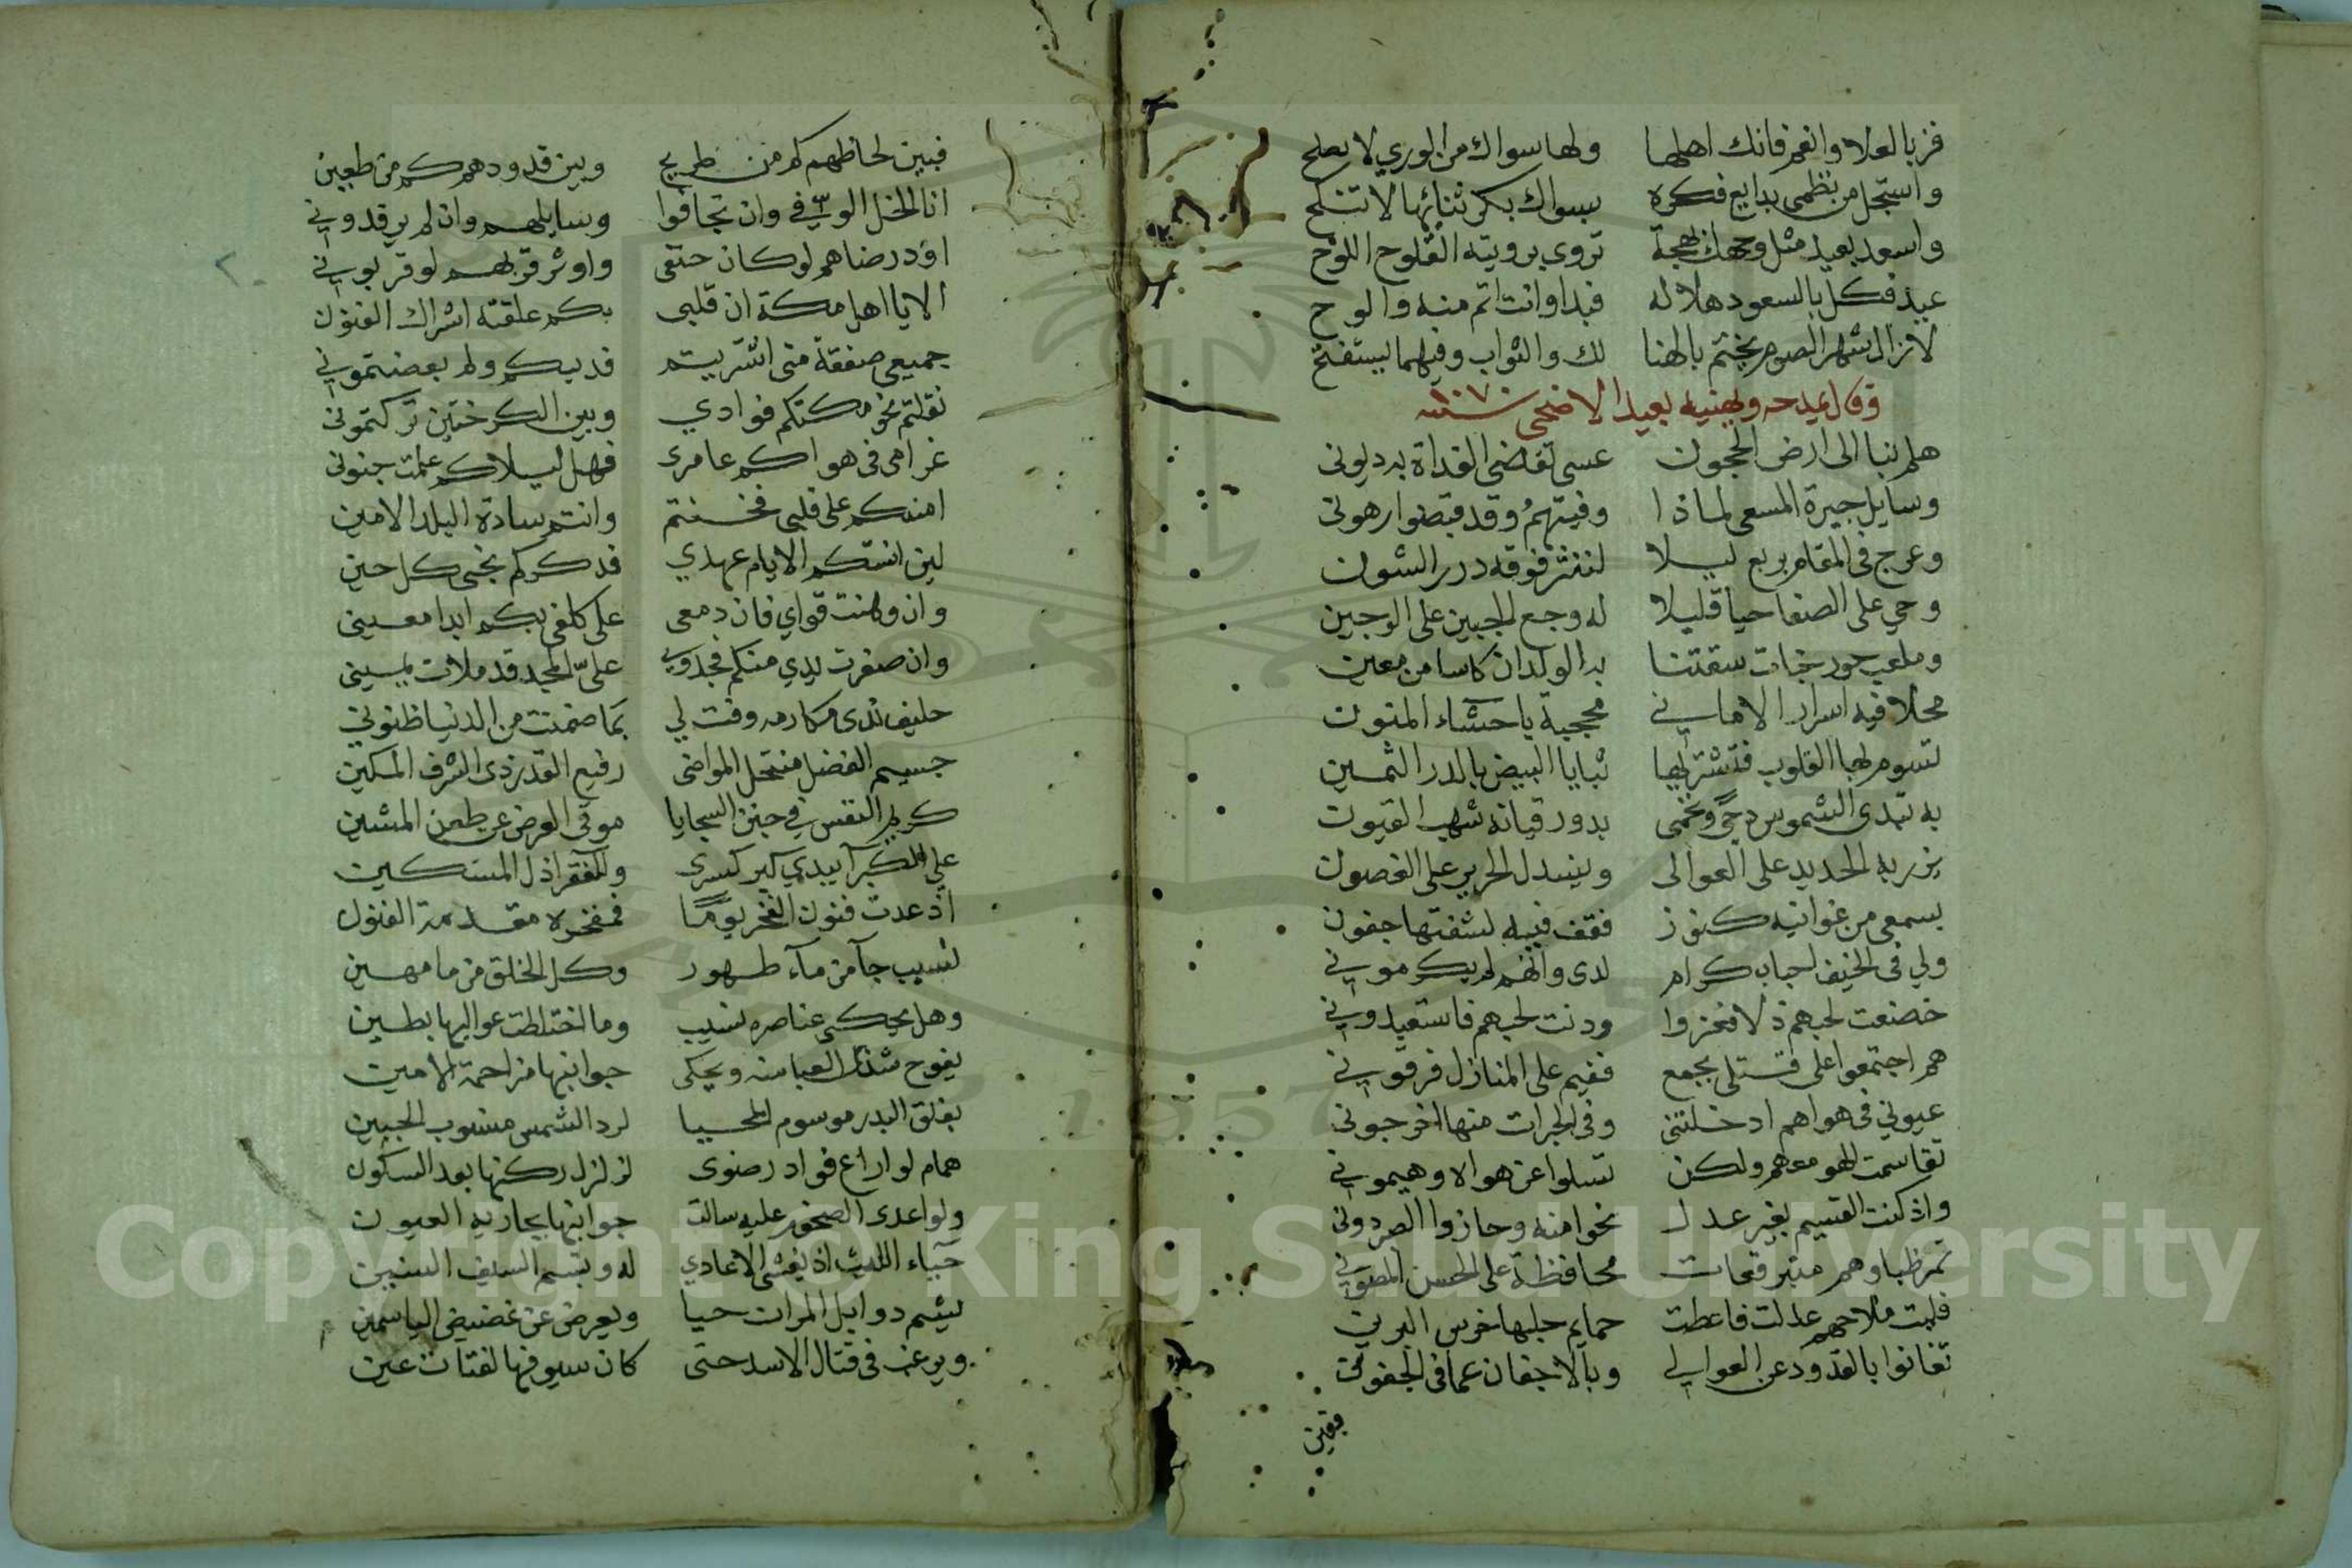 فز بالعلا وانعم فانك اهلها ولها سواك من الوري لا يصلح
واستجل من نظمي بدايع فكره بسواك بكر ثنائها لا تنكح
واسعد بعيد مثل وجهك بهجة تروي برويته القلوح اللوح
عيد فكل بالسعود هلاله فبدا وانت اتم منه والوح
لازال شهر الصوم يختم بالهنا لك والثواب وفيهما يستفتح
وقال يمدحه ويهنيه بعيد الاضحى سنة ١٠٧٠
هلم بنا الى ارض الحجون عسى تقضى الغداة به ديوني
وسايل جيرة المسعى لماذا وفيتهم وقد قبضوا رهوني
وعرج في المقام بربع ليلا لننثر فوقه درر الشون
وحي على الصفا حيا قليلا له وجع الجبين على الوجين
وملعب حور جنات سقتنا به الولدان كاسا من معين
محلا فيه اسرار الاماني محجبة باحشاء المنون
تسوم بها القلوب فتشتريها ثنايا البيض بالدر الثمين
به تبدى الشموس دجى وتحمى بدور قيانه شهب القيون
يزر به الحديد على العوالى وينسدل الحرير على الغصون
بسمعى من غوانيه كنوز فقف فيه لشفتها جفون
ولي في الخيف احباب كرام لدى وانهم لم يكرموني
خضعت لحبهم ذلا فعزوا ودنت لحبهم فاستعبدوني
هم اجتمعوا على قتلي بجمع ففيم على المنازل فرقوني
عيوني في هواهم ادخلتني وفي الجرات منها اخرجوني
تقاسمت الهوى معهم ولكن تسلوا عن هوالا وهيموني
واذ كنت القسيم بغير عدل نحوا منه وحازوا الصبر دوني
تمر ظباوهم متبرقعات محافظة على الحسن المصون
فليت ملاحهم عدلت فاعطت حمايم حليها خرس البرين
تغانوا بالقدود عن العوالي وبالاجفان عما في الجفون
فبين
فبين لحاظهم كم من طريح وبين قدودهم كم من طعين
انا الخل الوفي وان تجافوا وسايلهم وان لم يرفدوني
اود رضاهم لو كان حتفى واوثر قربهم لو قربوني
الا يا اهل مكة ان قلبي بكم علقته اشراك الفنون
جميعي صفقة مني اشتريتم فديتكم ولم بعضتموني
نقلتم نحو مكتكم فوادي وبين الكرختين تركتموني
غرامى في هواكم عامرى فهل ليلاكم علمت جنوني
امنتكم على قلبي فخنتم وانتم سادة البلد الامين
لين انستكم الايام عهدي فذكركم نجيى كل حين
وان وهنت قواي فان دمعي على كلفى بكم ابدا معيني
وان صفرت يدي منكم فجدوى على المجد قد ملات يميني
حليف ندى مكارمه وفت لي بما ضمنت من الدنيا ظنوني
جسيم الفضل منتحل المواضى رفيع القدر ذى الشرف المكين
كريم النفس في حبر السجايا موقى العرض عن طعن المشين
على المكبر آ يبدي كبر كسرى وللفقر اذل المستكين
اذ عدت فنون الفخر يوما فمفخره مقدمة الفنون
نسيب جآ من مآء طهور وكل الخلق من ما مهين
وهل يحكى عناصره نسيب وما اختلطت عواليها بطين
يفوح شذى العبا منه ويحكى جوانبها مزاحمة الامين
بفلق البدر موسوم المحيا لرد الشمس منسوب الجبين
همام لو اراع فواد رضوى لزلزل ركنها بعد السكون
ولو اعدى الصخور عليه سالت جوانبها بجارية العيون
حياء الليث اذ يغشى الاعادي له وتبسم السيف السنين
يشيم ذوابل المران حيا ويعرض عن غضيض الياسمين
ويرغب في قتال الاسد حتى كان سيوفها لفتات عين